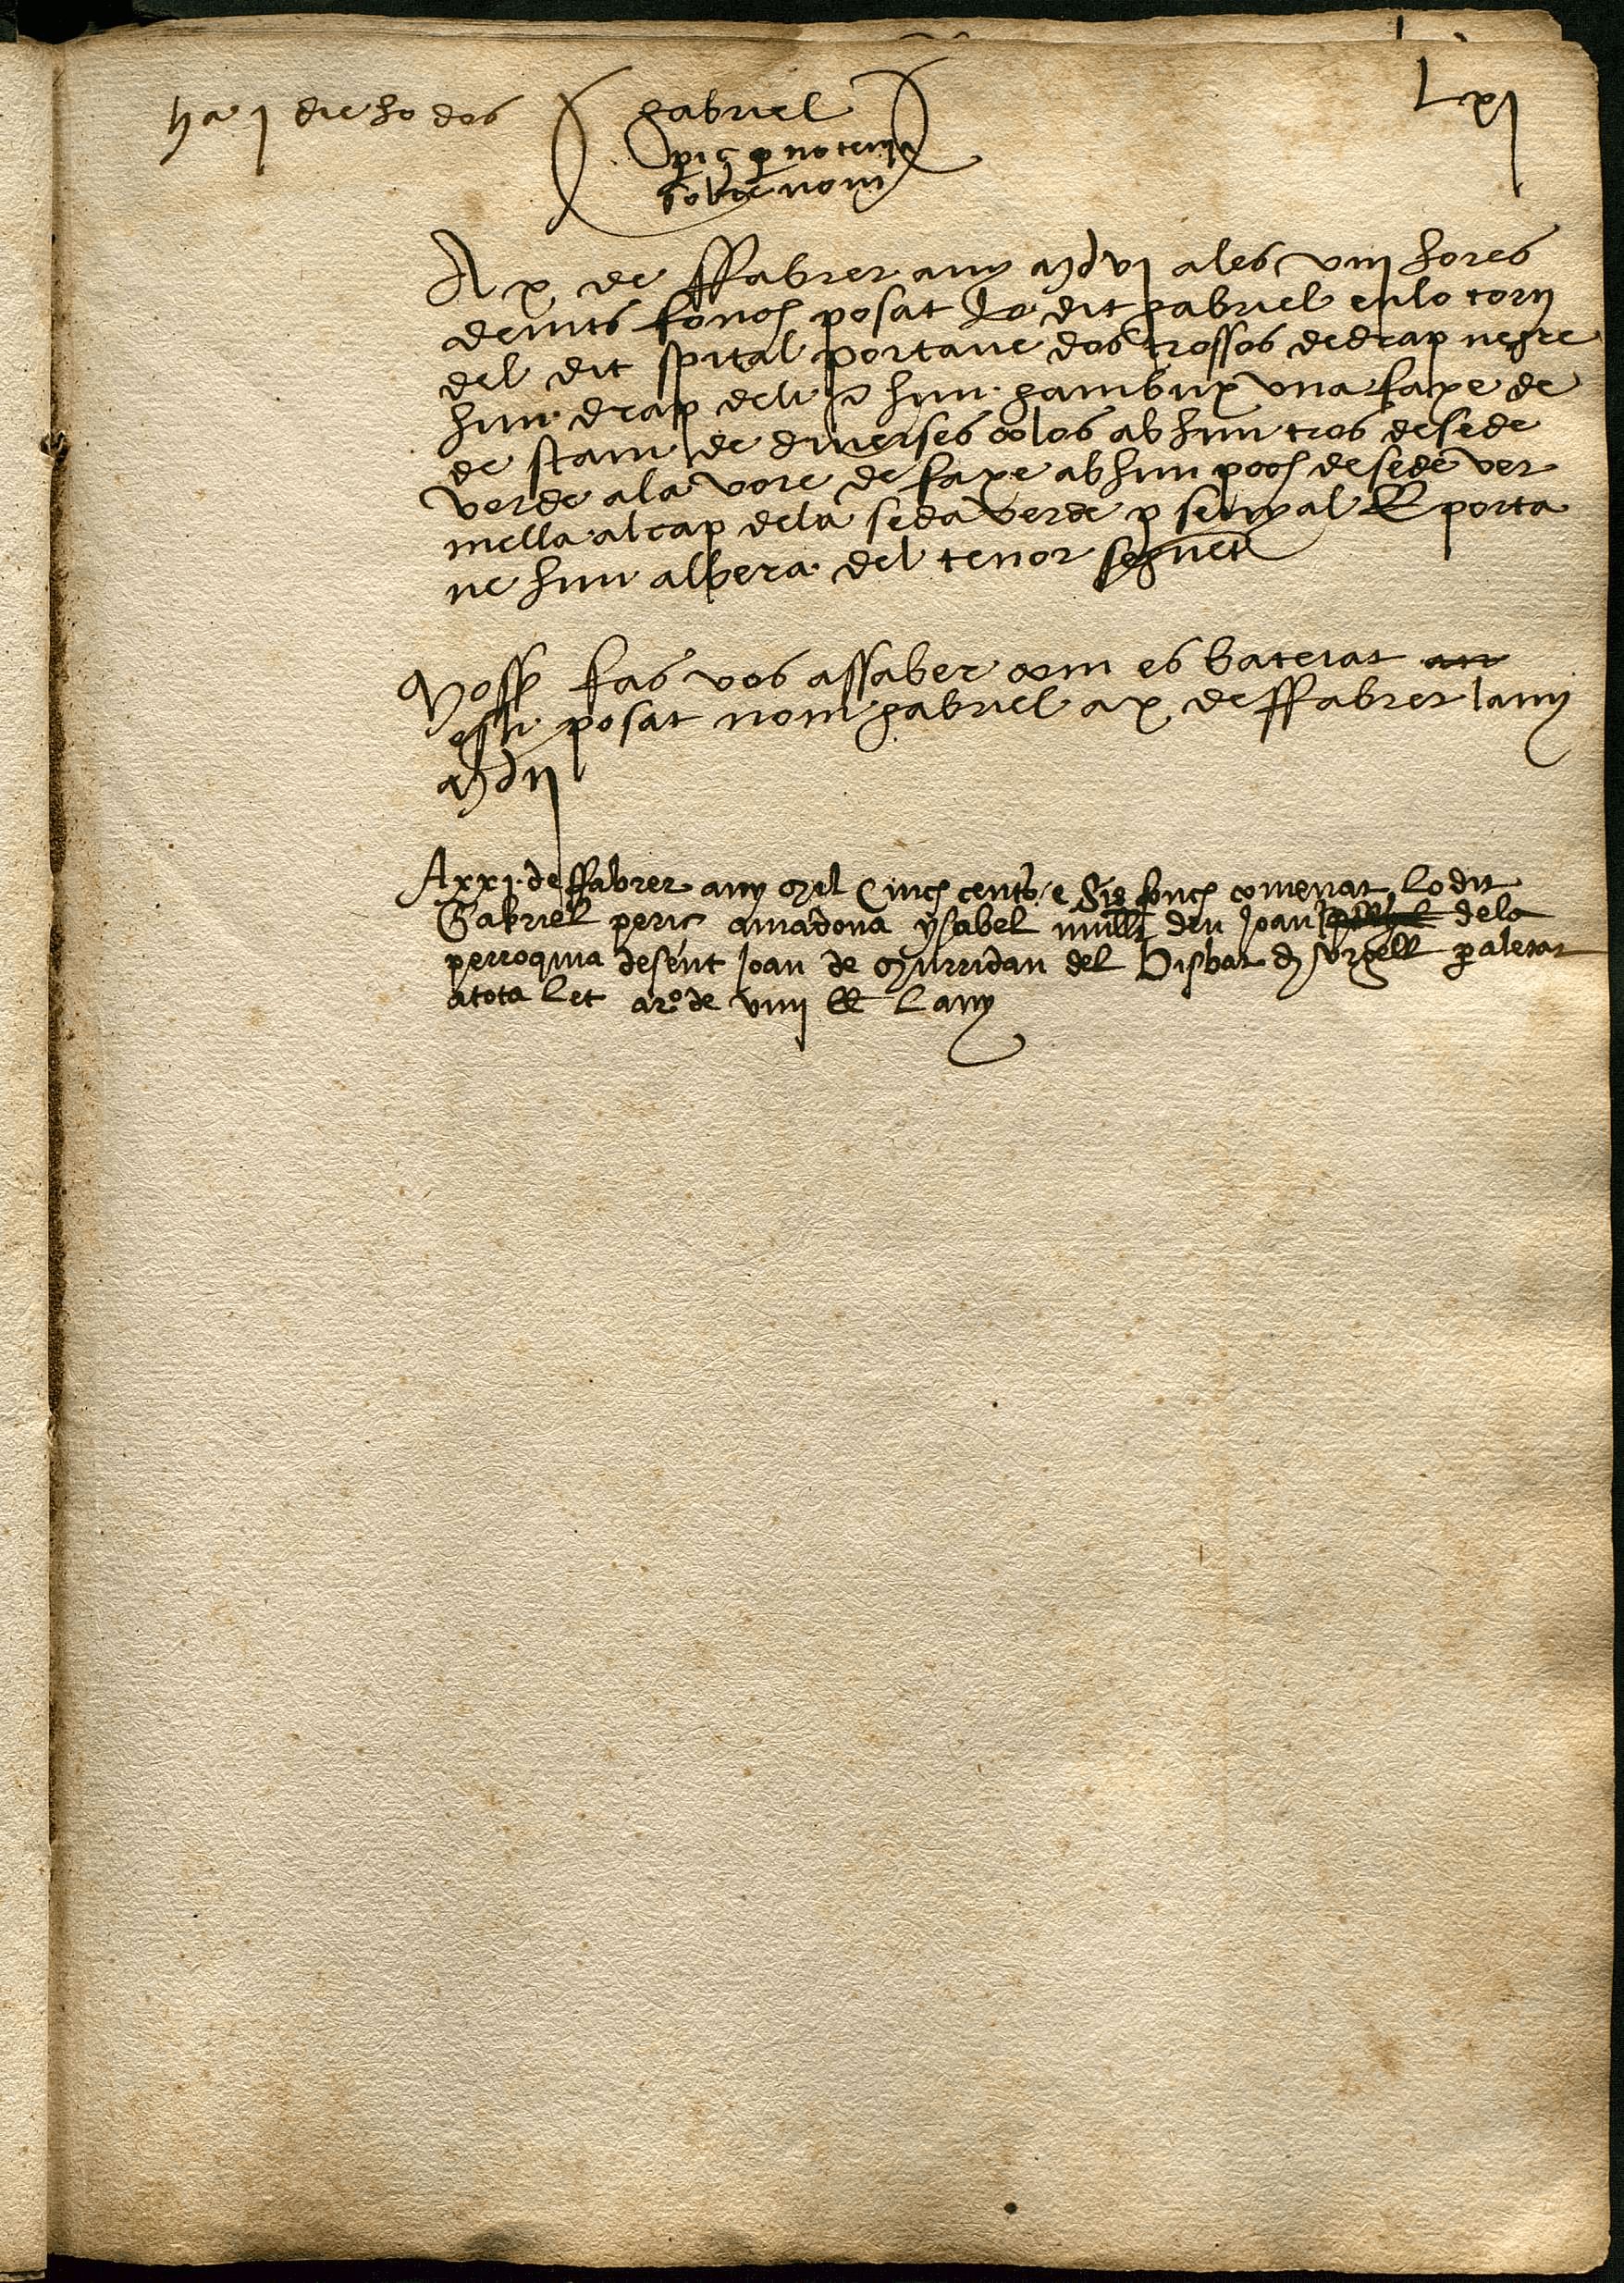 Lxj
ha j die ho dos
gabriel
pic p no tenir
sobre nom
A x de ffabrer any mdvj a les viiij hores
de nits fonch posat lo dit gabriel en lo torn
del dit spital portave dos trossos de drap negre
hun drap de li hun gambux vna faxe de
de stam de diuerses colos ab hun tros de sede
verde a la vore de faxe ab hun poch de sede ver
mella al cap de la seda verde p senyal E porta
ve hun albera del tenor seguet
fas vos assaber com es bateiat
esli posat nom gabriel a x de ffabrer lany
mdvj
A xxj de ffabrer any mil Cinch cents e Sis fonch comenat lo dit
Gabriel peric a madona ysabel mulle den Joan de la
perroquia de sent Joan de del Bisbat d vrgell p aletar
a tota let a ro de viiij ll lany